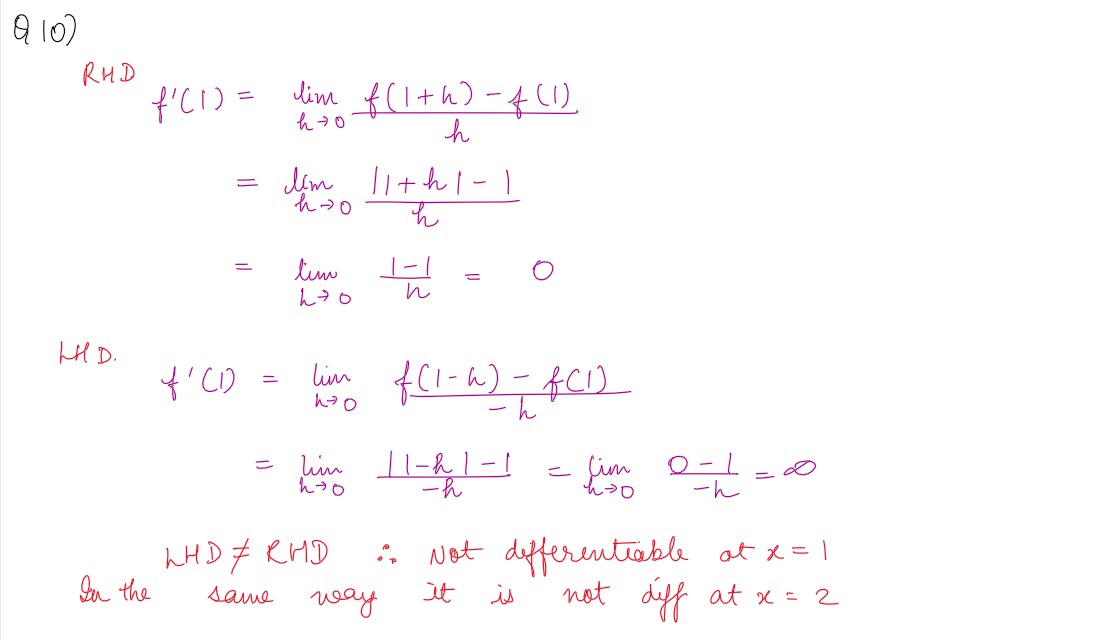 Q10)
RHD
f'(1) = lim h→0 f(1+h) - f(1) / h
= lim h→0 |1+h| - 1 / h
= lim h→0 1-1 / h = 0
LHD.
f'(1) = lim h→0 f(1-h) - f(1) / -h
= lim h→0 |1-h| - 1 / -h = lim h→0 0-1 / -h = ∞
LHD ≠ RHD ∴ Not differentiable at x = 1
In the same way it is not diff at x = 2